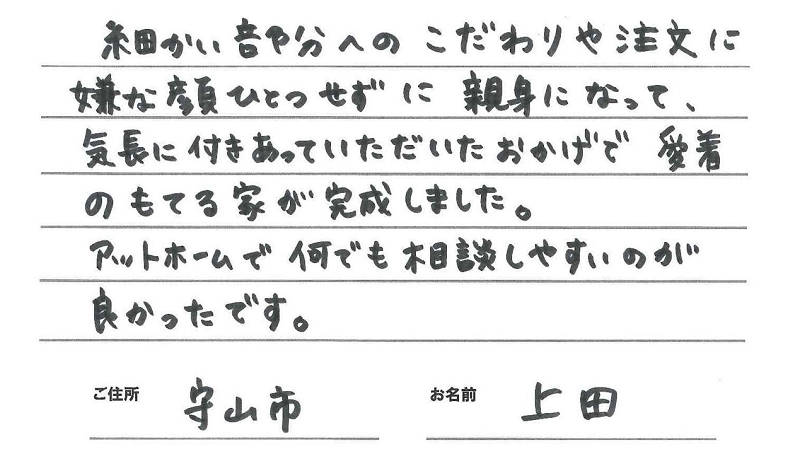 細かい部分へのこだわりや注文に
嫌な顔ひとつせずに 親身になって、
気長に付きあっていただいたおかげで 愛着
のもてる家が完成しました。
アットホームで 何でも相談しやすいのが
良かったです。
ご住所 守山市 お名前 上田